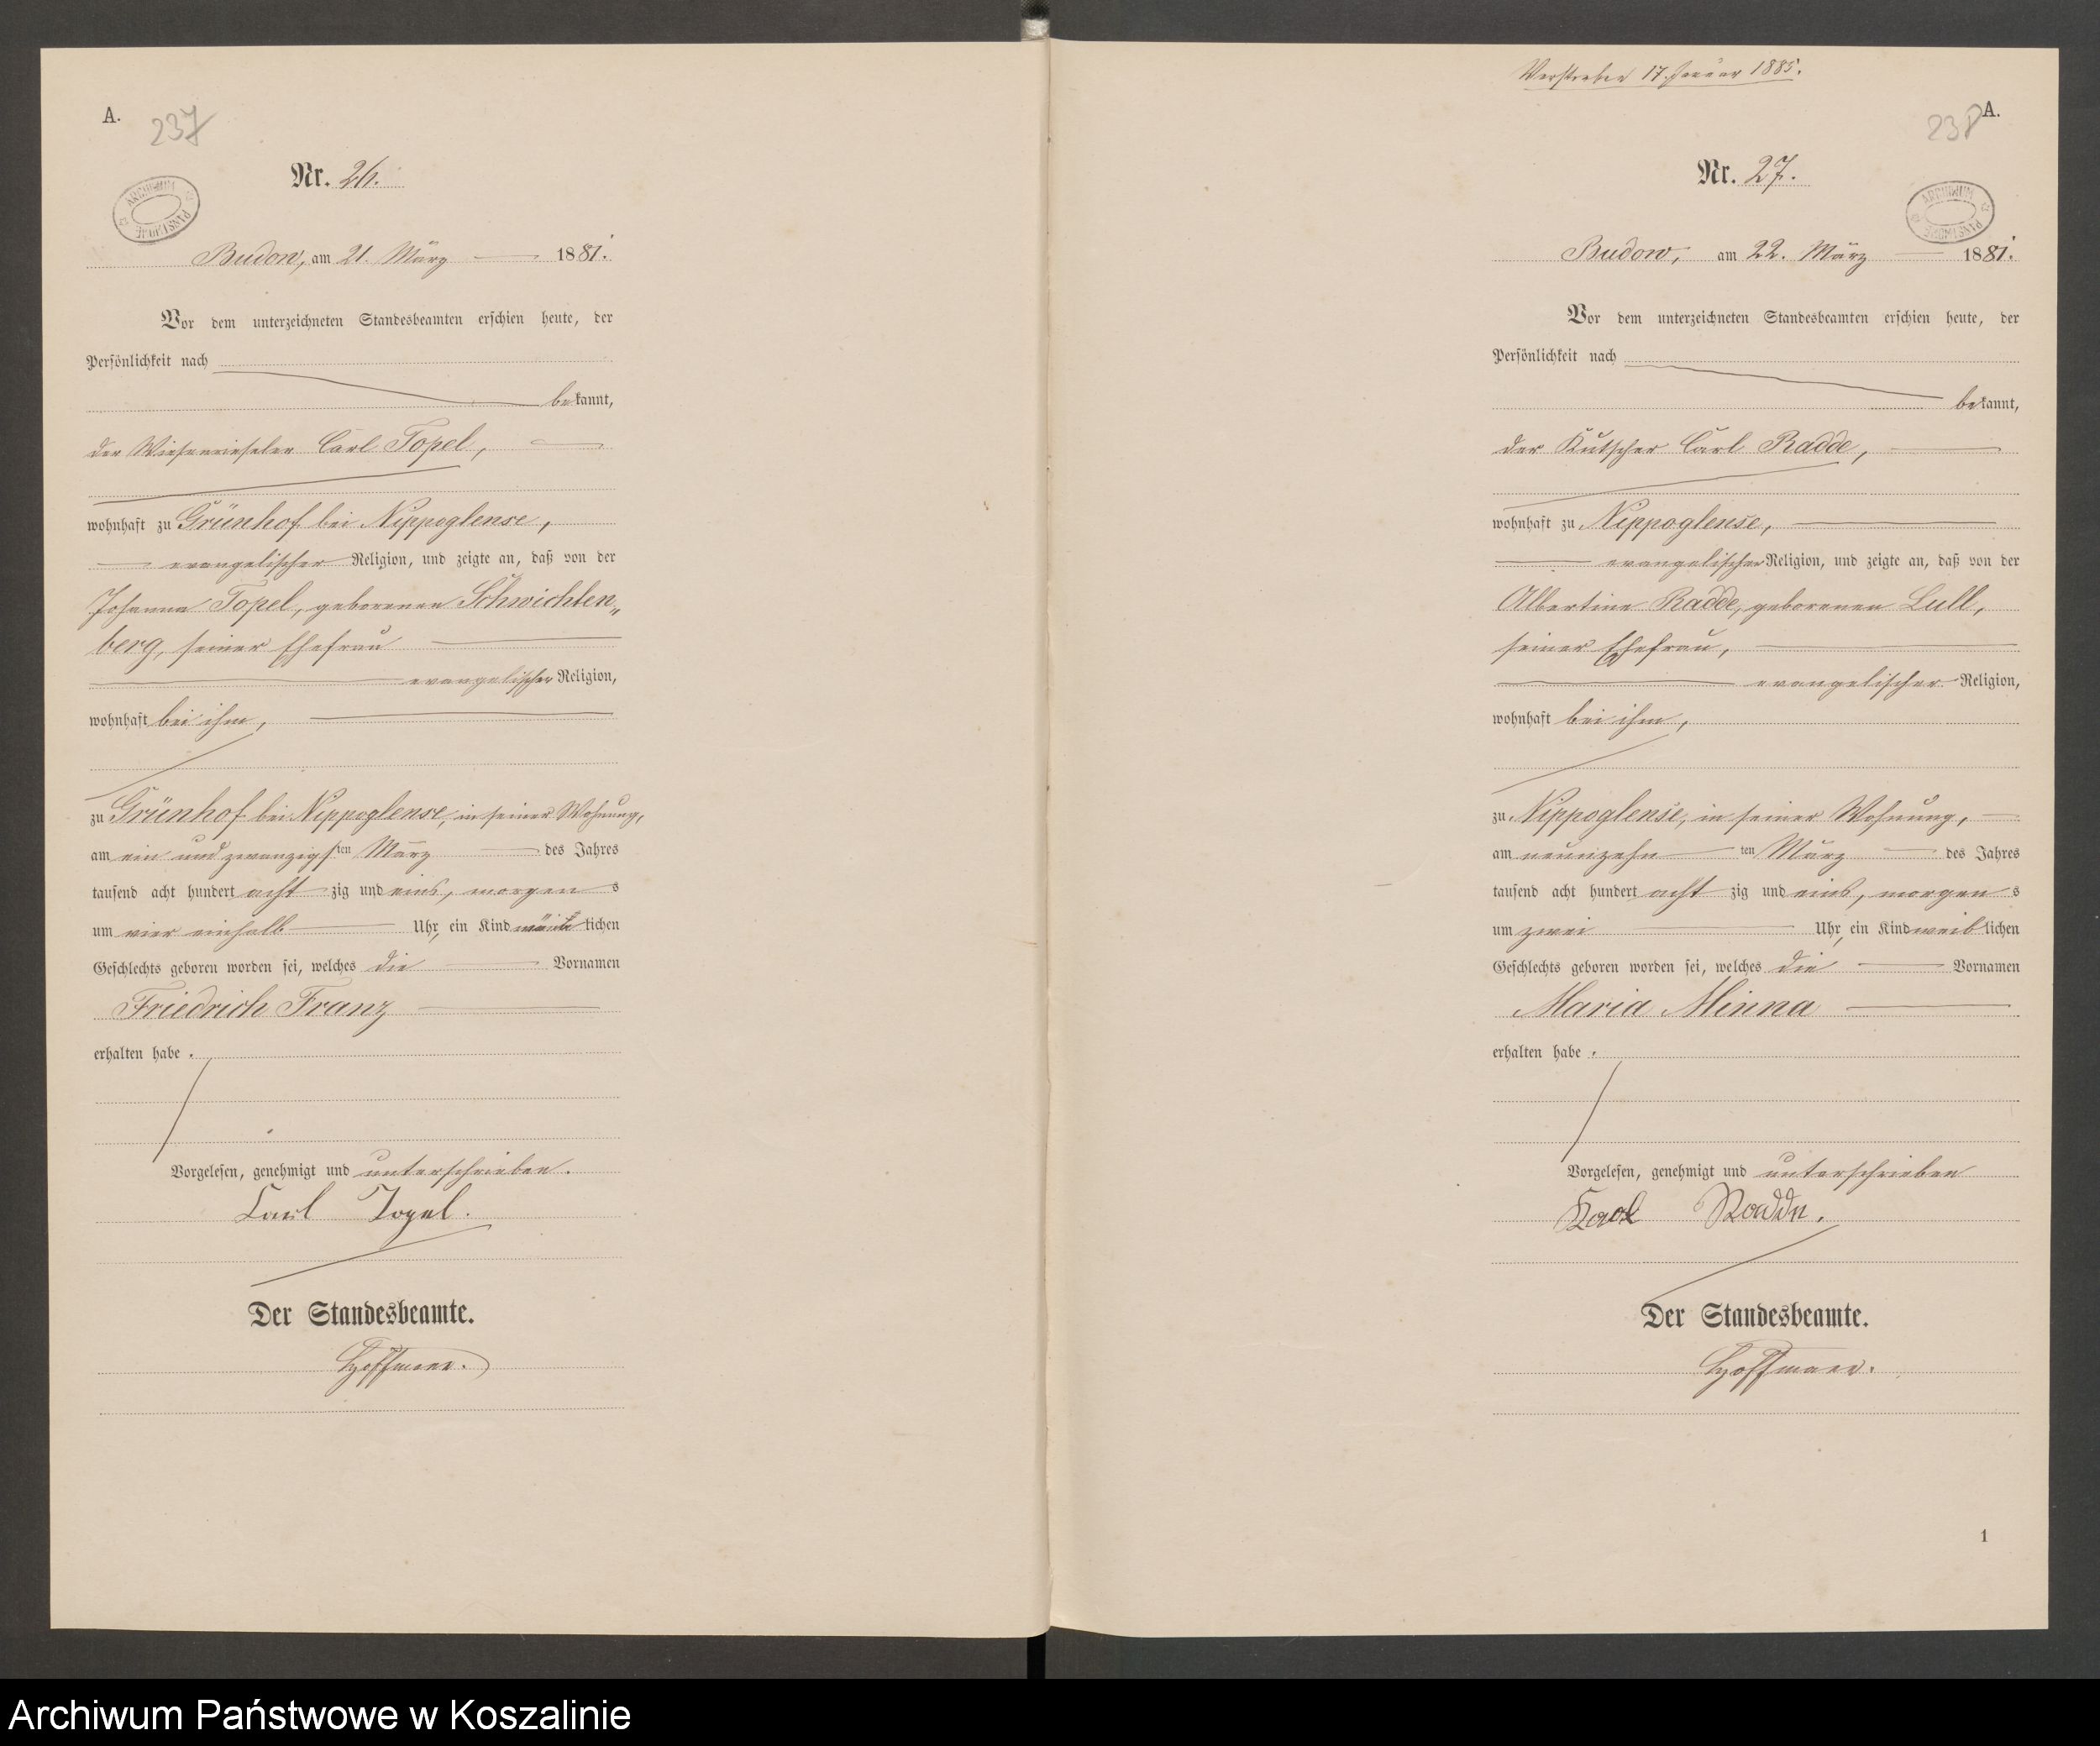 A.
237
Nr. 26.
ARCHIWUM PAŃSTWOWE
Budow, am 21. März 1881.
Vor dem unterzeichneten Standesbeamten erschien heute, der
Persönlichkeit nach
bekannt,
der Wiesenrieseler Carl Topel,
wohnhaft zu Grünhof bei Nippoglense,
evangelischer Religion, und zeigte an, daß von der
Johanna Topel, geborenen Schwichten„
berg, seiner Ehefrau
evangelischer Religion,
wohnhaft bei ihm,
zu Grünhof bei Nippoglense, in seiner Wohnung,
am ein und zwanzigsten März des Jahres
tausend acht hundert achtzig und eins, morgens
um vier einhalb Uhr, ein Kind männlichen
Geschlechts geboren worden sei, welches die Vornamen
Friedrich Franz
erhalten habe.
Vorgelesen, genehmigt und unterschrieben.
Carl Topel.
Der Standesbeamte.
Hoffmann.
Verstorben 17. Januar 1885.
A.
238
Nr. 27.
ARCHIWUM PAŃSTWOWE
Budow, am 22. März 1881.
Vor dem unterzeichneten Standesbeamten erschien heute, der
Persönlichkeit nach
bekannt,
der Kutscher Carl Radde,
wohnhaft zu Nippoglense,
evangelischer Religion, und zeigte an, daß von der
Albertine Radde, geborenen Lull,
seiner Ehefrau,
evangelischer Religion,
wohnhaft bei ihm,
zu Nippoglense, in seiner Wohnung,
am neunzehnten März des Jahres
tausend acht hundert achtzig und eins, morgens
um zwei Uhr, ein Kind weiblichen
Geschlechts geboren worden sei, welches die Vornamen
Maria Minna
erhalten habe.
Vorgelesen, genehmigt und unterschrieben
Karl Radde.
Der Standesbeamte.
Hoffmann.
1
Archiwum Państwowe w Koszalinie